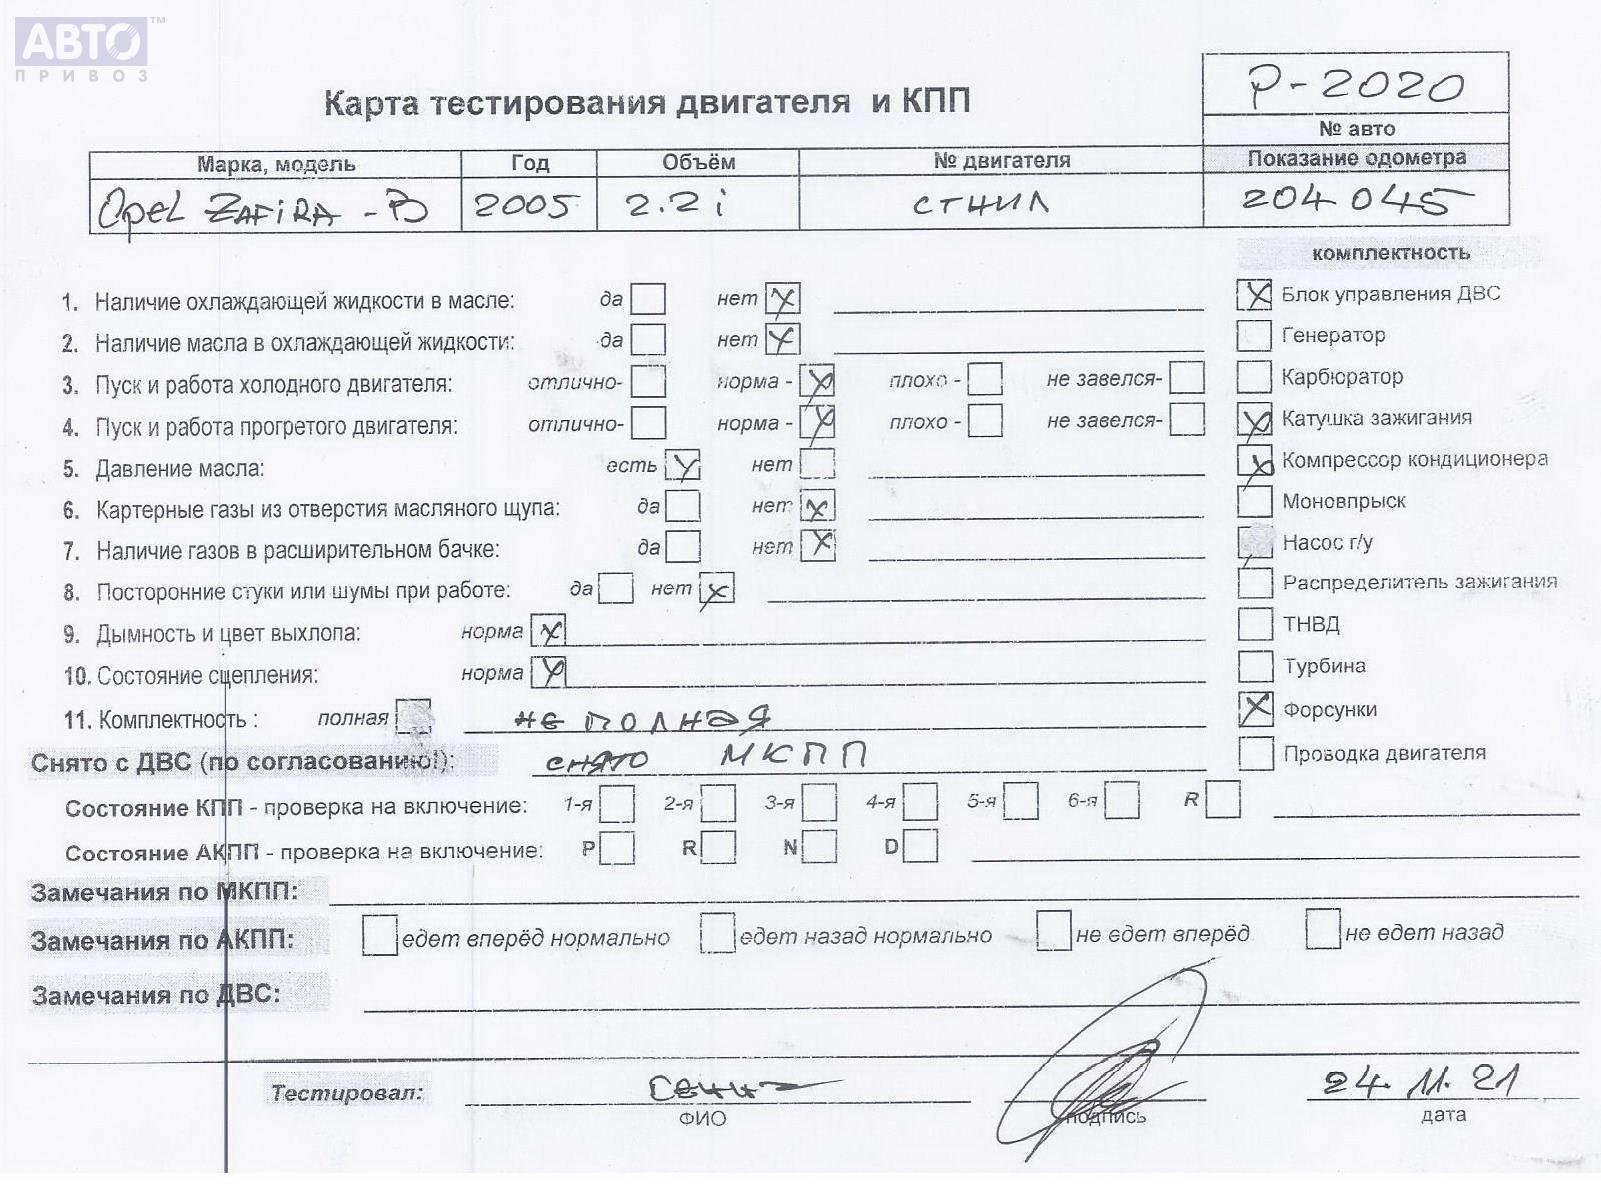 АВТО ™
ПРИВОЗ
Карта тестирования двигателя и КПП
P-2020
№ авто
Марка, модель Год Объём № двигателя Показание одометра
Opel ZAFIRA-B 2005 2.2i 204045
комплектность
1. Наличие охлаждающей жидкости в масле: да нет X
Блок управления ДВС X
2. Наличие масла в охлаждающей жидкости: да нет X
Генератор
3. Пуск и работа холодного двигателя: отлично- норма - X плохо - не завелся-
Карбюратор
4. Пуск и работа прогретого двигателя: отлично- норма - X плохо - не завелся-
Катушка зажигания X
5. Давление масла: есть X нет
Компрессор кондиционера X
6. Картерные газы из отверстия масляного щупа: да нет X
Моновпрыск
7. Наличие газов в расширительном бачке: да нет X
Насос г/у
8. Посторонние стуки или шумы при работе: да нет X
Распределитель зажигания
9. Дымность и цвет выхлопа: норма X
ТНВД
10. Состояние сцепления: норма X
Турбина
11. Комплектность : полная не полная
X Форсунки
Снято с ДВС (по согласованию!): снято МКПП
Проводка двигателя
Состояние КПП - проверка на включение: 1-я 2-я 3-я 4-я 5-я 6-я R
Состояние АКПП - проверка на включение: P R N D
Замечания по МКПП:
Замечания по АКПП: едет вперёд нормально едет назад нормально не едет вперёд не едет назад
Замечания по ДВС:
Тестировал: 24.11.21
ФИО подпись дата